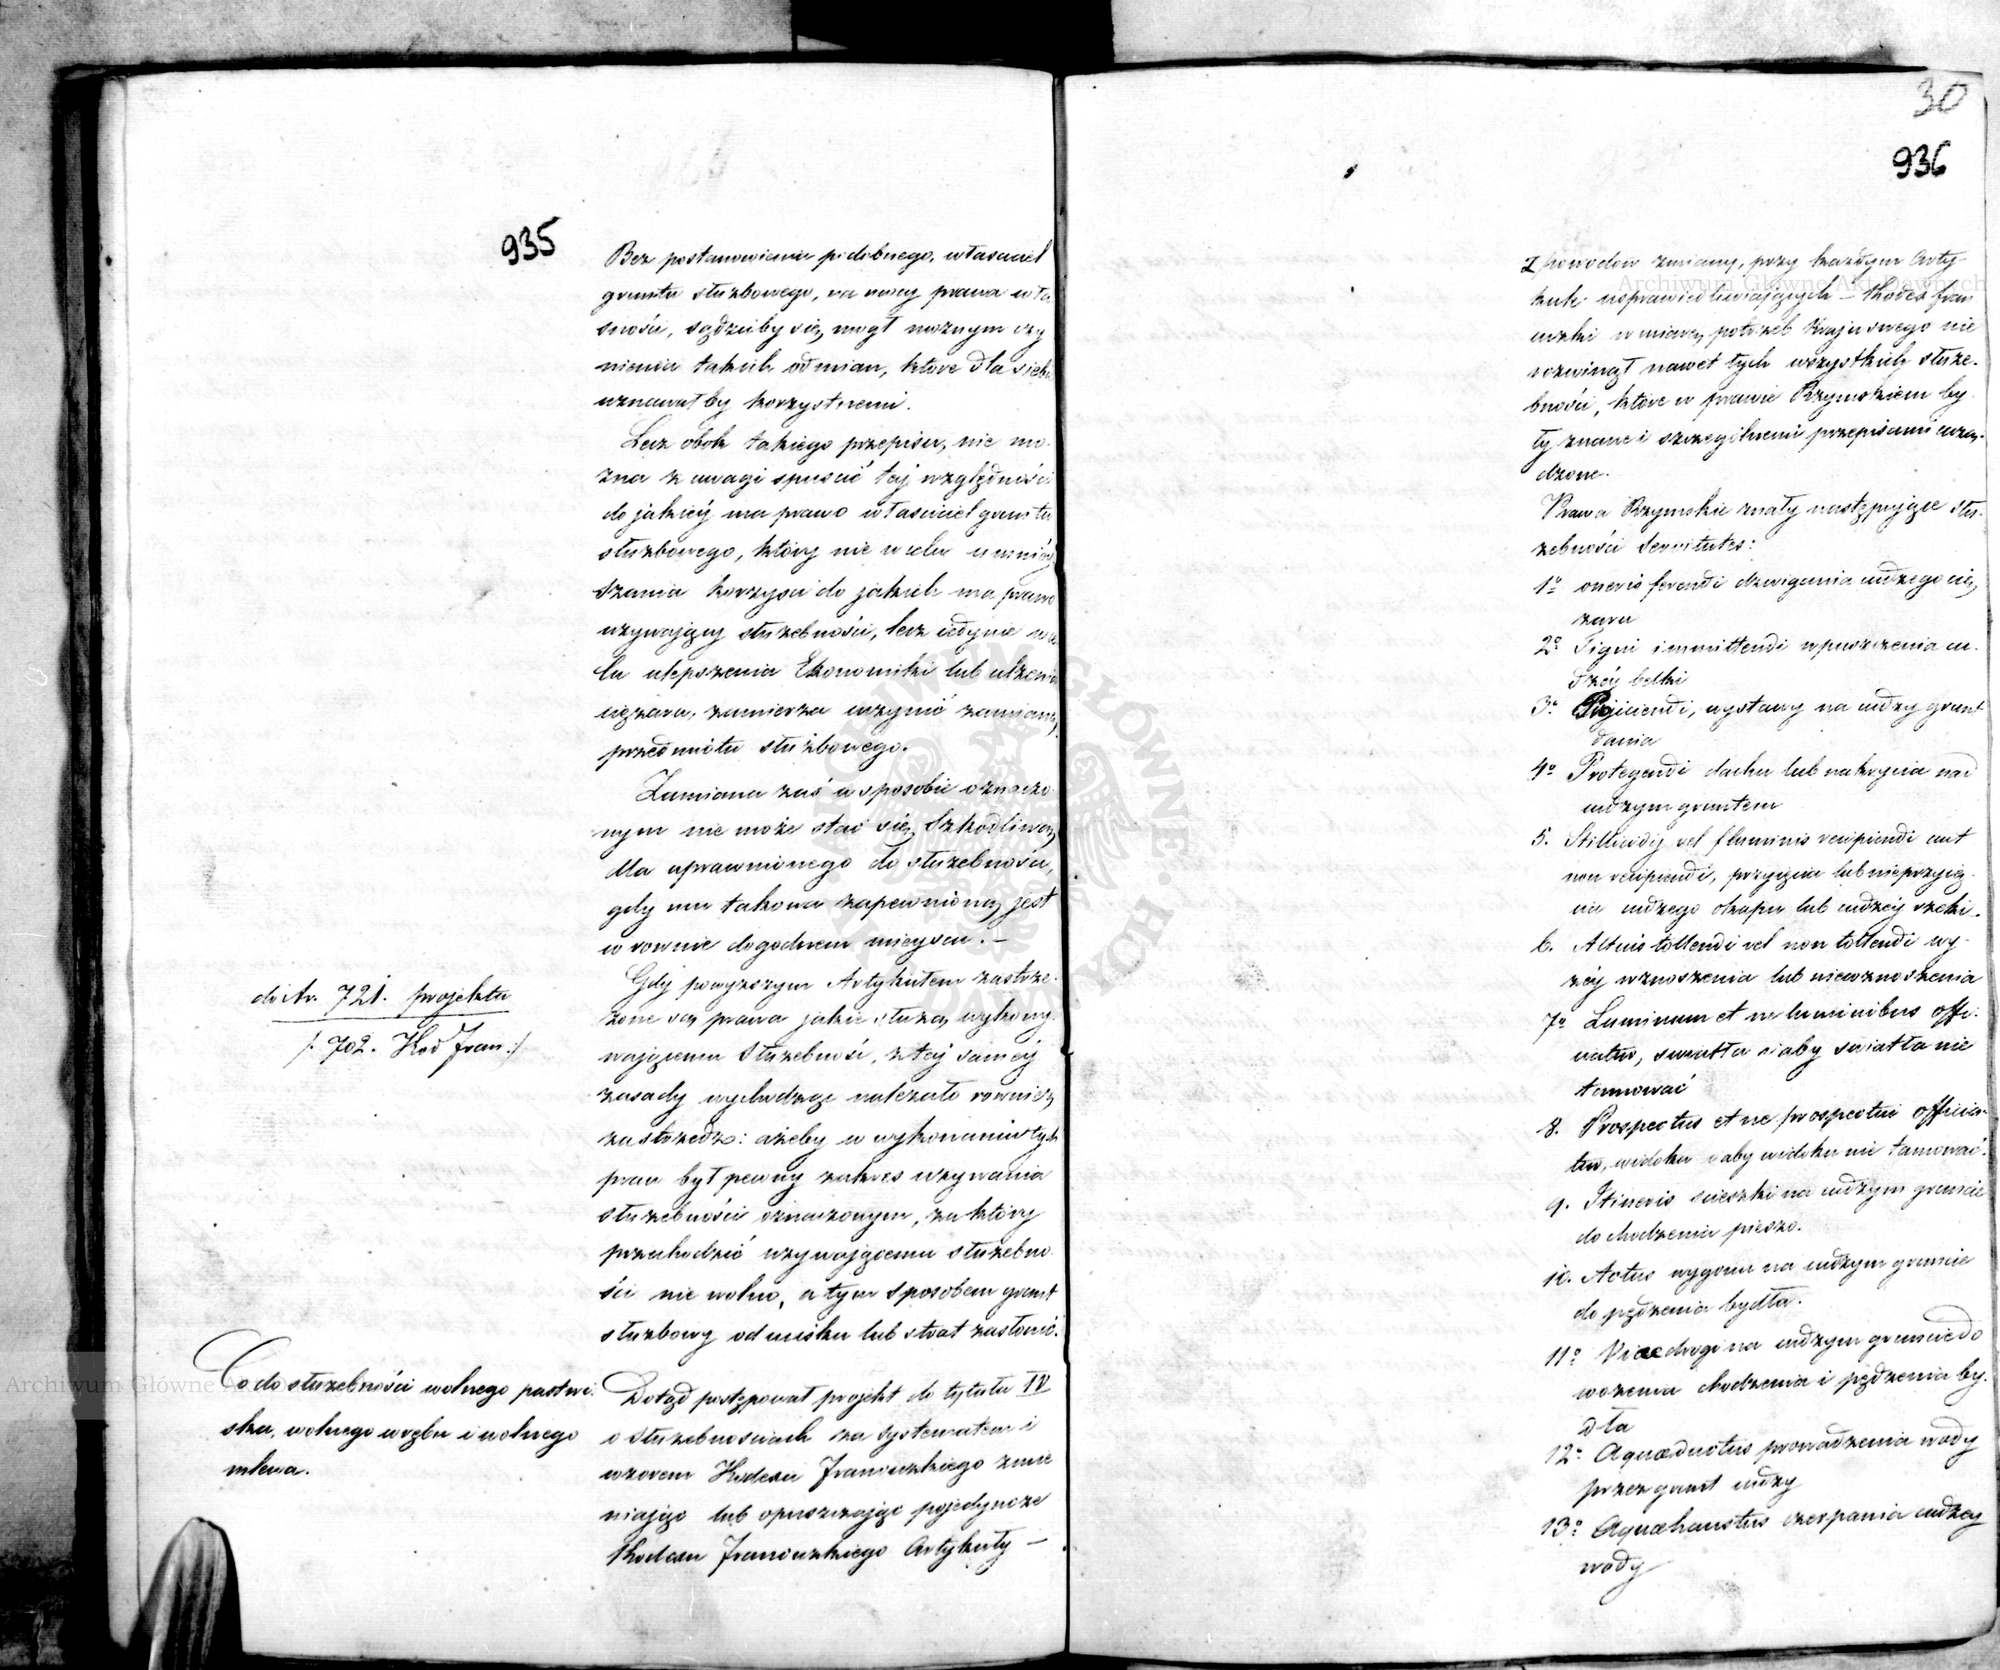 935
Bez postanowienia podobnego, własciciel
gruntu służbowego, na mocy prawa wła
sności, sądziłby się mogł mocnym czy
nienia takich odmian, ktore dla siebie
uznawałby korzystnemi.
Lecz obok takiego przepisu, nie mo
żna z uwagi spuscić tej względności
do jakiéj ma prawo własciciel gruntu
służbowego, który nie w celu umniéj
szania korzysci do jakich ma prawo
używający służebności, lecz jedynie w ce
lu ulepszenia Ekonomiki lub ulżenia
ciężaru, zamierza uczynić zamianę
przedmiotu służbowego.
Zamiana zaś w sposobie oznaczo
nym nie może stać się szkodliwą
dla uprawnionego do służebności,
gdy mu takowa zapewnioną jest
w rownie dogodnem miejscu. –
do Ar. 721. projektu
/: 702. Kod Fran :/
Gdy powyższym Artykułem zastrze
żone są prawa jakie służą wykony
wającemu służebność, z tej saméj
zasady wychodząc należało rownież
zastrzedz: ażeby w wykonaniu tych
praw był pewny zakres używania
służebności oznaczonym, za który
przechodzić używającemu służebno
ści nie wolno, a tym sposobem grunt
służbowy od ucisku lub strat zasłonić.
Co do służebności wolnego pastwi
ska, wolnego wrębu i wolnego
mlewa.
Dotąd postępował projekt do tytułu IV
o służebnosciach za systematem i
wzorem Kodexu Francuzkiego zmie
niając lub opuszczając pojedyncze
Kodexu Francuzkiego Artykuły –
30
936
Z powodow zmiany, przy każdym Arty
kule usprawiedliwiających – Kodex fran
cuzki w miarę potrzeb Kraju swego nie
rozwinął nawet tych wszystkich służe-
bności, ktore w prawie Rzymskiem by
ły znane i szczególnemi przepisami urzą-
dzone.
Prawa Rzymskie znały następujące słu-
żebności Servitutes:
1o oneris ferendi dzwigania cudzego cię
żaru
2o Tigni immittendi wpuszczenia cu-
dzéj belki
3o Projiciendi, wystawy na cudzy grunt
dania
4o Protegendi dachu lub nakrycia nad
cudzym gruntem
5. Stillicidij vel fluminis recipiendi aut
non recipiendi, przyjęcia lub nieprzyję
cia cudzego okapu lub cudzéj rzeki.
6. Altius tollendi vel non tollendi wy-
żéj wznoszenia lub niewznoszenia
7o Luminum et ne luminibus offi-
ciatur, swiatła i aby swiatła nie
tamować
8. Prospectus et ne prospectui officia-
tur, widoku i aby widoku nie tamować.
9. Itineris scieszki na cudzym gruncie
do chodzenia pieszo.
10. Actus wygonu na cudzym gruncie
do pędzenia bydła.
11o Viae drogi na cudzym gruncie do
wożenia chodzenia i pędzenia by-
dła
12o Aquæductus prowadzenia wody
przez grunt cudzy
13o Aquæhaustus czerpania cudzéj
wody
Archiwum Główne Akt Dawnych
ARCHIWUM GŁÓWNE AKT DAWNYCH